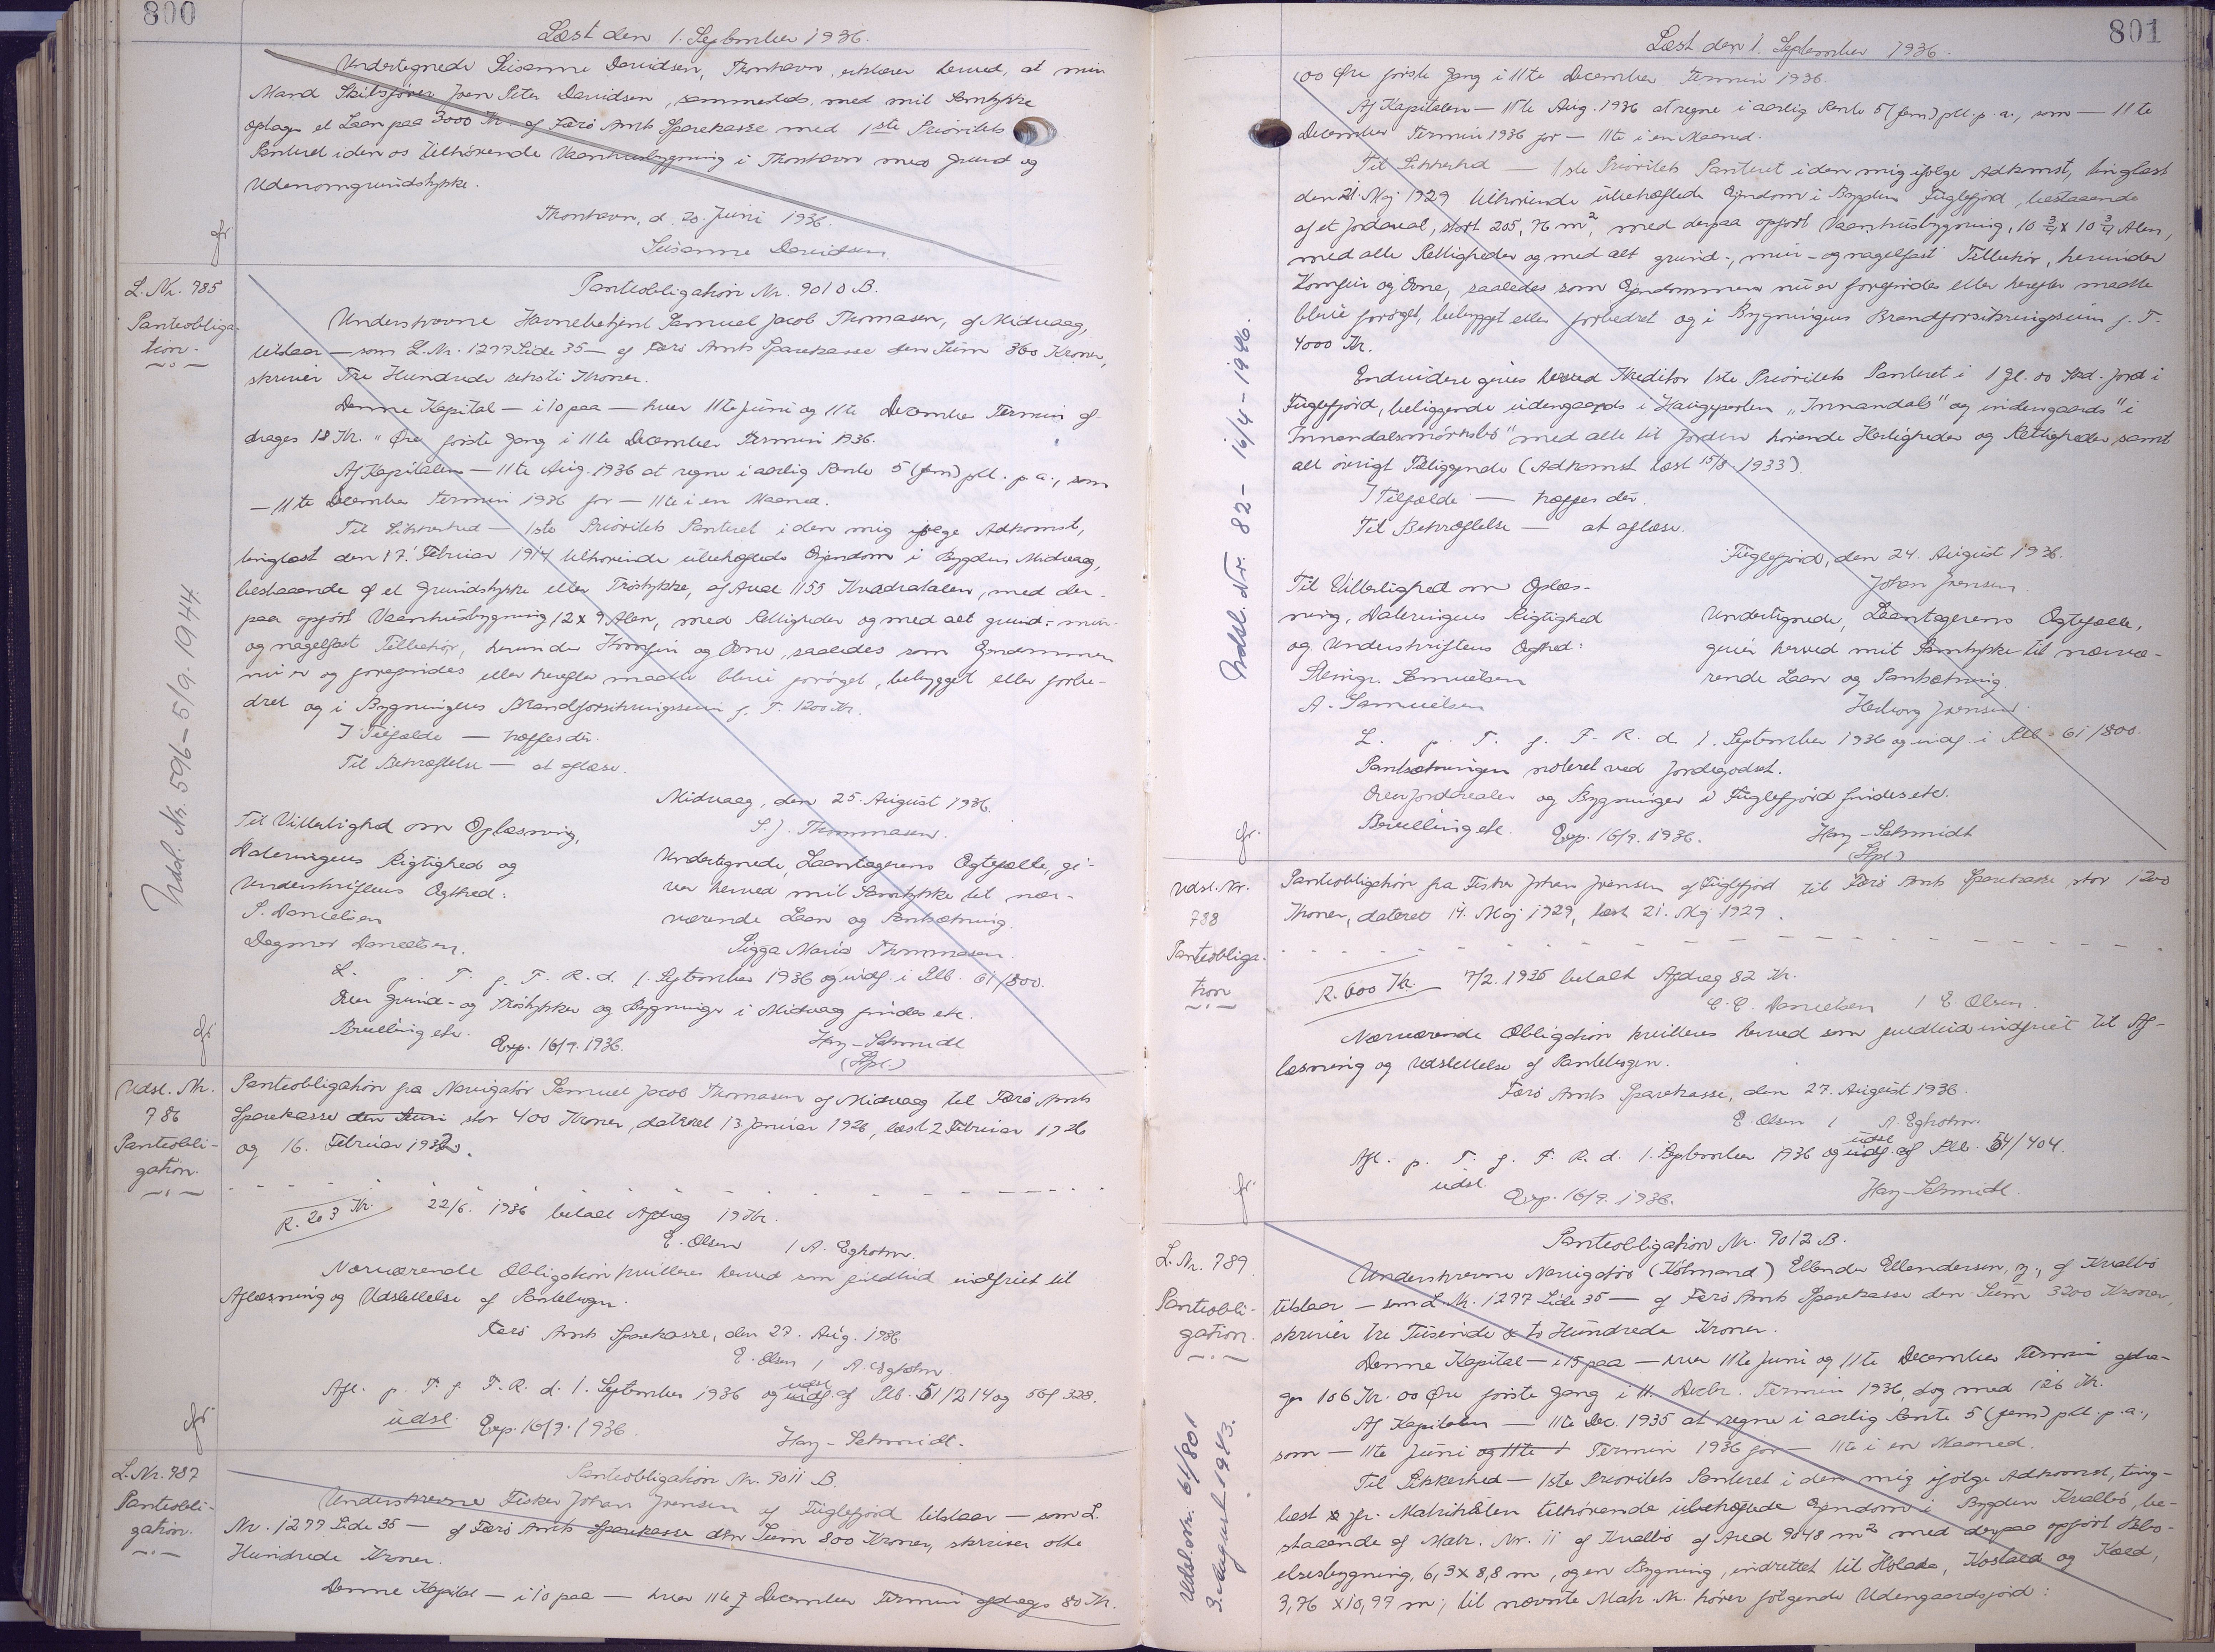 800
Læst den 1. September 1936.
Undertegnede Susanne Davidsen, Thorshavn, erklærer herved, at min
Mand Skibsfører Joen Peter Davidsen, sammesteds, med mit Samtykke
optager et Laan paa 3000 Kr. af Færø Amts Sparekasse med 1ste Prioritets
Panteret i den os tilhørende Vaaningshusbygning i Thorshavn med Grund og
Udenomsgrundstykke.
Thorshavn, d. 20. Juni 1936.
Susanne Davidsen
L. Nr. 785
Panteobliga-
tion.
Panteobligation Nr. 9010 B.
Underskrevne Havnebetjent Samuel Jacob Thomasen, af Midvaag,
tilstaar — som L. Nr. 1277 Side 35 — af Færø Amts Sparekasse den Sum 360 Kroner,
skriver Tre Hundrede seksti Kroner.
Denne Kapital — i 10 paa — hver 11te Juni og 11te December Termin af-
drages 18 Kr. " Øre første Gang i 11te December Termin 1936.
Af Kapitalen — 11te Aug. 1936 at regne i aarlig Rente 5 (fem) pCt. p. a., som
— 11te December Termin 1936 for — 11te i en Maaned.
Til Sikkerhed — 1ste Prioritets Panteret i den mig ifølge Adkomst,
tinglæst den 17. Februar 1914 tilhørende ubehæftede Ejendom i Bygden Midvaag,
bestaaende af et Grundstykke eller Trøstykke, af Areal 1155 Kvadratalen, med der-
paa opført Vaanhusbygning 12 x 9 Alen, med Rettigheder og med alt grund-, mur-
og nagelfast Tilbehør, herunder Komfur og Ovne, saaledes som Ejendommen
nu er og forefindes eller herefter maatte blive forøget, bebygget eller forbe-
dret og i Bygningens Brandforsikringssum f. T. 1200 Kr.
I Tilfælde — hæftes der.
Til Bekræftelse — at aflæse.
Midvaag, den 25. August 1936.
S. J. Thommasen.
Til Vitterlighed om Oplæsning,
Dateringens Rigtighed og
Underskriftens Ægthed:
S. Danielsen
Dagmar Danielsen.
Undertegnede, Laantagerens Ægtefælle, gi-
ver herved mit Samtykke til nær-
værende Laan og Pantsætning.
Sigga Maria Thommasen.
L. p. T. f. F. R. d. 1. September 1936 og indf. i Ptb. 61/800.
Over Grund- og Trøstykker og Bygninger i Midvaag findes etc.
Bevilling etc.
Exp. 16/9. 1936.
Hay-Schmidt
(Stpl.)
Udsl. Nr. 596 - 5/9. 1944.
Udsl. Nr.
786
Panteobli-
gation.
Panteobligation fra Navigatør Samuel Jacob Thomasen af Midvaag til Færø Amts
Sparekasse den Sum stor 400 Kroner, dateret 13 Januar 1926, læst 2 Februar 1926
og 16. Februar 1932.
R. 203 Kr. 22/6. 1936 betalt Afdrag 19 Kr.
E. Olsen / A. Egholm.
Nærværende Obligation kvitteres herved som fuldtud indfriet til
Aflæsning og Udslettelse af Pantebogen.
Færø Amts Sparekasse, den 27. Aug. 1936
E. Olsen / A. Egholm.
Afl. p. T. f. F. R. d. 1. September 1936 og indf. udsl. af Ptb. 51/214 og 56/328.
udsl. Exp. 16/9. 1936.
Hay-Schmidt.
L. Nr. 787
Panteobli-
gation.
Panteobligation Nr. 9011 B.
Underskrevne Fisker Johan Joensen af Fuglefjord tilstaar — som L.
Nr. 1277 Side 35 — af Færø Amts Sparekasse den Sum 800 Kroner, skriver otte
Hundrede Kroner.
Denne Kapital — i 10 paa — hver 11te December Termin afdrages 80 Kr.
801
Læst den 1. September 1936.
00 Øre første Gang i 11te December Termin 1936.
Af Kapitalen — 11te Aug. 1936 at regne i aarlig Rente 5 (fem) pCt. p. a., som — 11te
December Termin 1936 for — 11te i en Maaned.
Til Sikkerhed — 1ste Prioritets Panteret i den mig ifølge Adkomst, tinglæst
den 21. Maj 1929 tilhørende ubehæftede Ejendom i Bygden Fuglefjord, bestaaende
af et Jordareal, stort 205,76 m², med derpaa opført Vaanhusbygning, 10 3/4 x 10 3/4 Alen,
med alle Rettigheder og med alt grund-, mur- og nagelfast Tilbehør, herunder
Komfur og Ovne, saaledes som Ejendommen nu er forefindes eller herefter maatte
blive forøget, bebygget eller forbedret og i Bygningens Brandforsikringssum f. T.
4000 Kr.
Endvidere gives herved Kreditor 1ste Prioritets Panteret i 1 Gl. 00 Skd. Jord i
Fuglefjord, beliggende udengaards i Haugeparten "Innandals" og indengaards "i
Innandalsmørkubø" med alle til Jorden hørende Herligheder og Rettigheder, samt
alt øvrigt Tilliggende (Adkomst læst 15/8 1933).
I Tilfælde — hæftes der.
Til Bekræftelse — at aflæse.
Fuglefjord, den 24. August 1936.
Johan Joensen
Til Vitterlighed om Oplæs-
ning, Dateringens Rigtighed
og Underskriftens Ægthed:
Steingr. Samuelsen
A. Samuelsen
Undertegnede, Laantagerens Ægtefælle,
giver herved mit Samtykke til nærvæ-
rende Laan og Pantsætning.
Herborg Joensen.
L. p. T. f. F. R. d. 1. September 1936 og indf. i Ptb. 61/800.
Pantsætningen noteret ved Jordegodset.
Over Jordarealer og Bygninger i Fuglefjord findes etc.
Bevilling etc. Exp. 16/9. 1936.
Hay-Schmidt
(Stpl.)
Udsl. Nr. 82 - 16/4 - 1946.
Udsl. Nr.
788
Panteobliga-
tion
Panteobligation fra Fisker Johan Joensen af Fuglefjord til Færø Amts Sparekasse stor 1200
Kroner, dateret 14. Maj 1929, læst 21. Maj 1929.
R. 600 Kr. 7/2. 1935 betalt Afdrag 82 Kr.
E. E. Danielsen / E. Olsen.
Nærværende Obligation kvitteres herved som fuldtud indfriet til Af-
læsning og Udslettelse af Pantebogen.
Færø Amts Sparekasse, den 27. August 1936.
E. Olsen / A. Egholm.
Afl. p. T. f. F. R. d. 1. September 1936 og indf. udsl. af Ptb. 54/404.
udsl.
Exp. 16/9. 1936.
Hay-Schmidt.
L. Nr. 789
Panteobli-
gation.
Panteobligation Nr. 9012 B.
Underskrevne Navigatør (Kølmand) Ellendur Ellendersen, y., af Kvalbø
tilstaar — som L. Nr. 1277 Side 35 — af Færø Amts Sparekasse den Sum 3200 Kroner,
skriver tre Tusinde to Hundrede Kroner.
Denne Kapital — i 15 paa — hver 11te Juni og 11te December Termin afdra-
ges 106 Kr. 00 Øre første Gang i 11. Decbr. Termin 1936, dog med 126 Kr.
Af Kapitalen — 11te Dec. 1935 at regne i aarlig Rente 5 (fem) pCt. p. a.,
som — 11te Juni og 11te Termin 1936 for — 11te i en Maaned.
Til Sikkerhed — 1ste Prioritets Panteret i den mig ifølge Adkomst, ting-
læst jfr. Matrikulen tilhørende ubehæftede Ejendom i Bygden Kvalbø, be-
staaende af Matr. Nr. 11 af Kvalbø af Areal 9048 m² med derpaa opført Bebo-
elsesbygning, 6,3 x 8,8 m, og en Bygning, indrettet til Hølade, Kostald og Kæld,
3,76 x 10,97 m; til nævnte Matr. Nr. hører følgende Udengaardsjord:
Udsl. Nr. 61/801
3. August 1943.